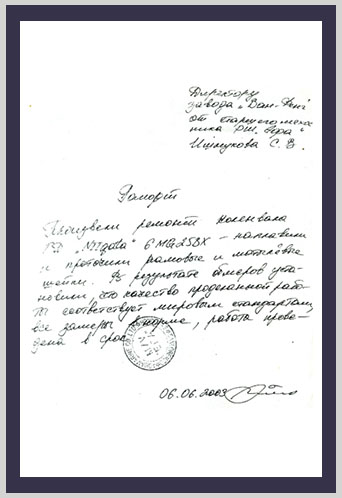 Директору
завода "Ван-Фен"
от старшего меха-
ника РШ "Гера"
С. В.
Рапорт
ремонт коленвала
6 MG25BX - наплавили
и проточили рамовые и мотылёвые
шейки. В результате обмеров уста-
новили, что качество проделанной рабо-
ты соответствует мировым стандартам,
все замеры в норме, работа прове-
дена в срок.
06.06.2003